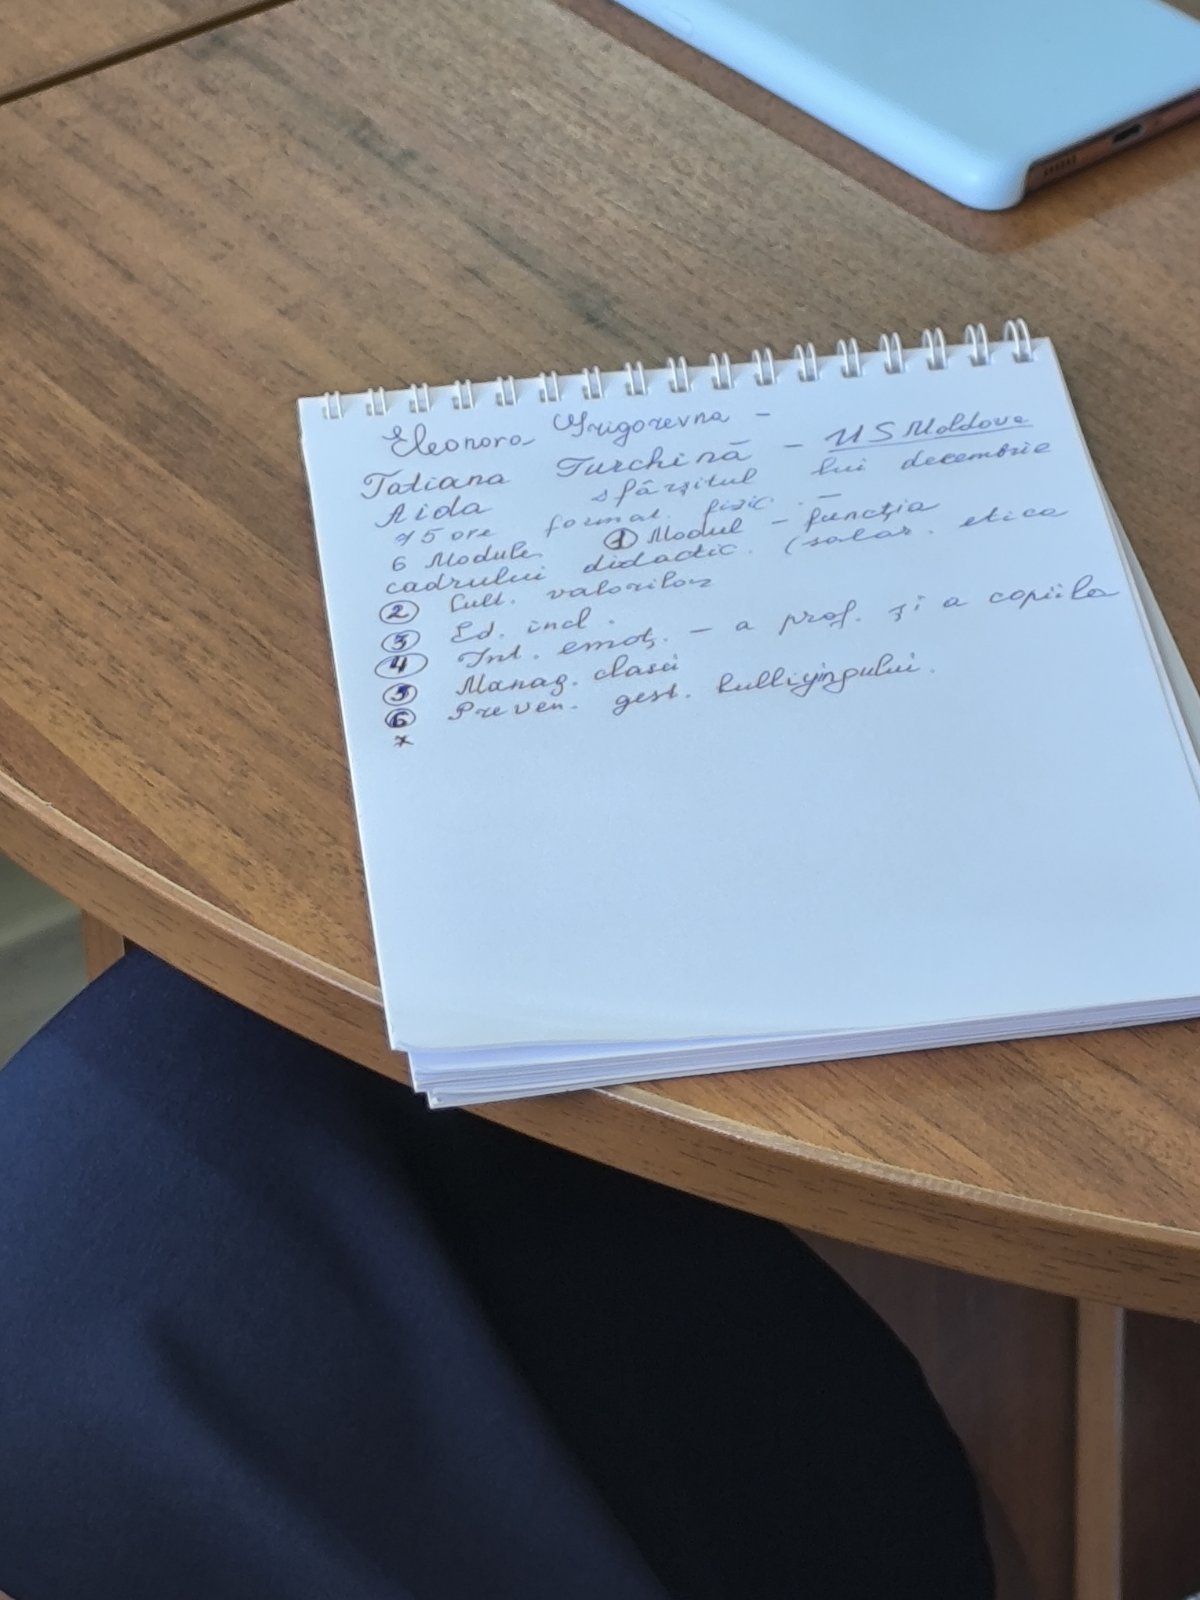 Eleonora Grigorevna -
Tatiana Turchină - US Moldova
Aida sfârșitul lui decembrie
ore format fizic.
6 Module. ① Modul - funcția
cadrului didactic. (salar. etica
② Cult. valorilor
③ Ed. incl.
④ Int. emoț. - a prof. și a copiilo
⑤ Manag. clasei
⑥ Preven. gest. bulliyingului.
*